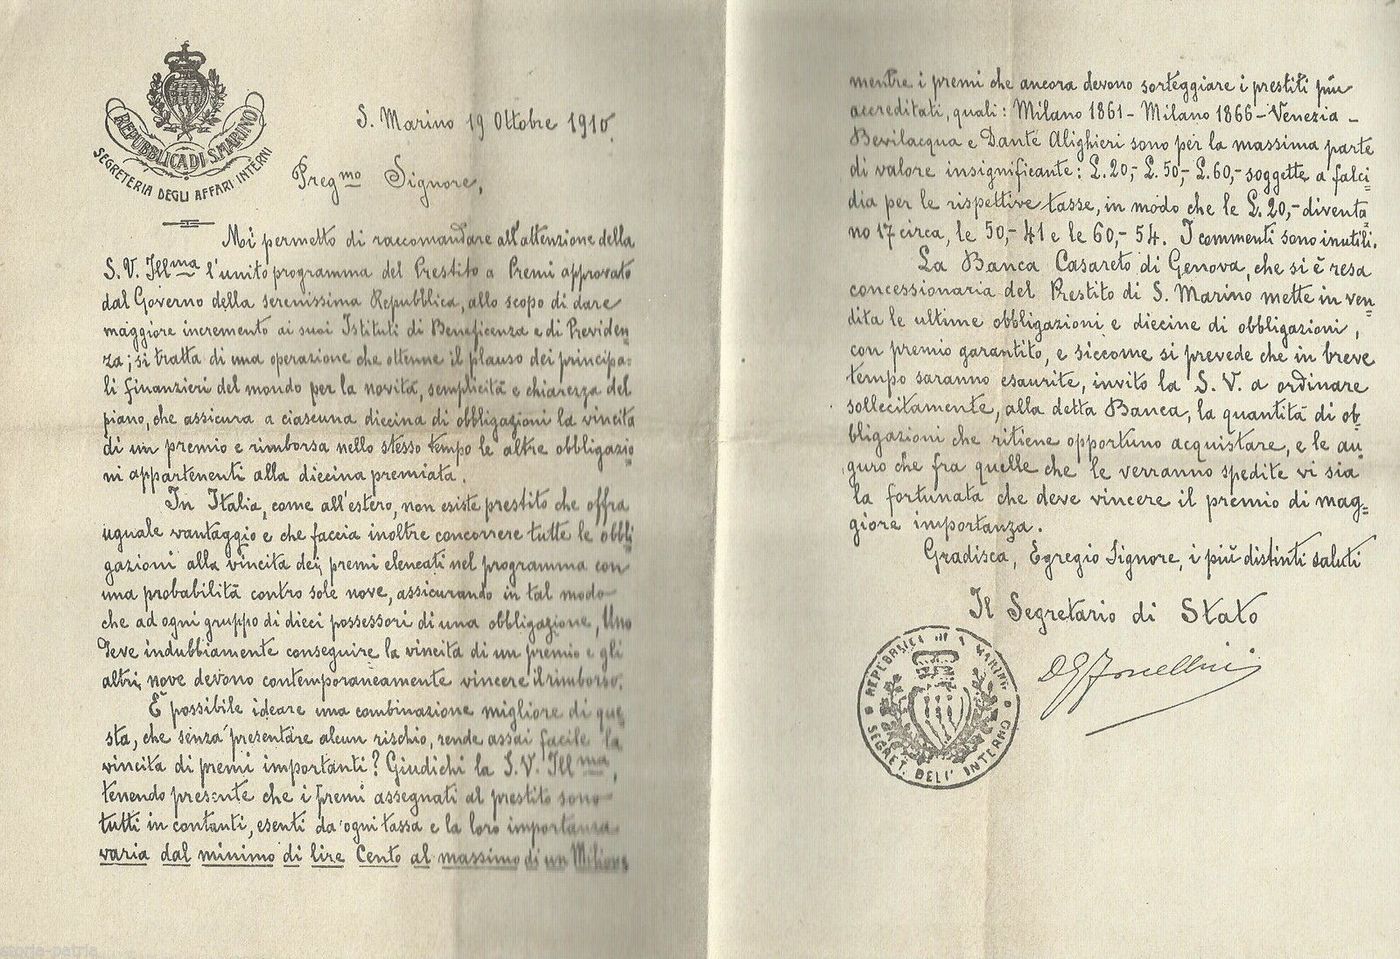 REPUBBLICA DI S. MARINO
SEGRETERIA DEGLI AFFARI INTERNI
S. Marino 19 Ottobre 1910
Pregmo Signore,
Mi permetto di raccomandare all'attenzione della
S. V. Illma l'unito programma del Prestito a Premi approvato
dal Governo della serenissima Repubblica, allo scopo di dare
maggiore incremento ai suoi Istituti di Beneficenza e di Previden-
za; si tratta di una operazione che ottenne il plauso dei principa-
li finanzieri del mondo per la novità, semplicità e chiarezza del
piano, che assicura a ciascuna diecina di obbligazioni la vincita
di un premio e rimborsa nello stesso tempo le altre obbligazio-
ni appartenenti alla diecina premiata.
In Italia, come all'estero, non esiste prestito che offra
uguale vantaggio e che faccia inoltre concorrere tutte le obbli-
gazioni alla vincita dei premi elencati nel programma con
una probabilità contro sole nove, assicurando in tal modo
che ad ogni gruppo di dieci possessori di una obbligazione, Uno
deve indubbiamente conseguire la vincita di un premio e gli
altri nove devono contemporaneamente vincere il rimborso.
È possibile ideare una combinazione migliore di que-
sta, che senza presentare alcun rischio, rende assai facile la
vincita di premi importanti? Giudichi la S. V. Illma,
tenendo presente che i premi assegnati al prestito sono
tutti in contanti, esenti da ogni tassa e la loro importanza
varia dal minimo di lire Cento al massimo di un Milione
mentre i premi che ancora devono sorteggiare i prestiti più
accreditati, quali: Milano 1861 - Milano 1866 - Venezia -
Bevilacqua e Dante Alighieri sono per la massima parte
di valore insignificante: L. 20,- L. 50,- L. 60,- soggette a falci-
dia per le rispettive tasse, in modo che le L. 20,- diventa-
no 17 circa, le 50,- 41 e le 60,- 54. I commenti sono inutili.
La Banca Casareto di Genova, che si è resa
concessionaria del Prestito di S. Marino mette in ven-
dita le ultime obbligazioni e diecine di obbligazioni,
con premio garantito, e siccome si prevede che in breve
tempo saranno esaurite, invito la S. V. a ordinare
sollecitamente, alla detta Banca, la quantità di ob-
bligazioni che ritiene opportuno acquistare, e le au-
guro che fra quelle che le verranno spedite vi sia
la fortunata che deve vincere il premio di mag-
giore importanza.
Gradisca, Egregio Signore, i più distinti saluti
Il Segretario di Stato
REPUBBLICA DI S. MARINO
SEGRET. DELL' INTERNO
storia-patria